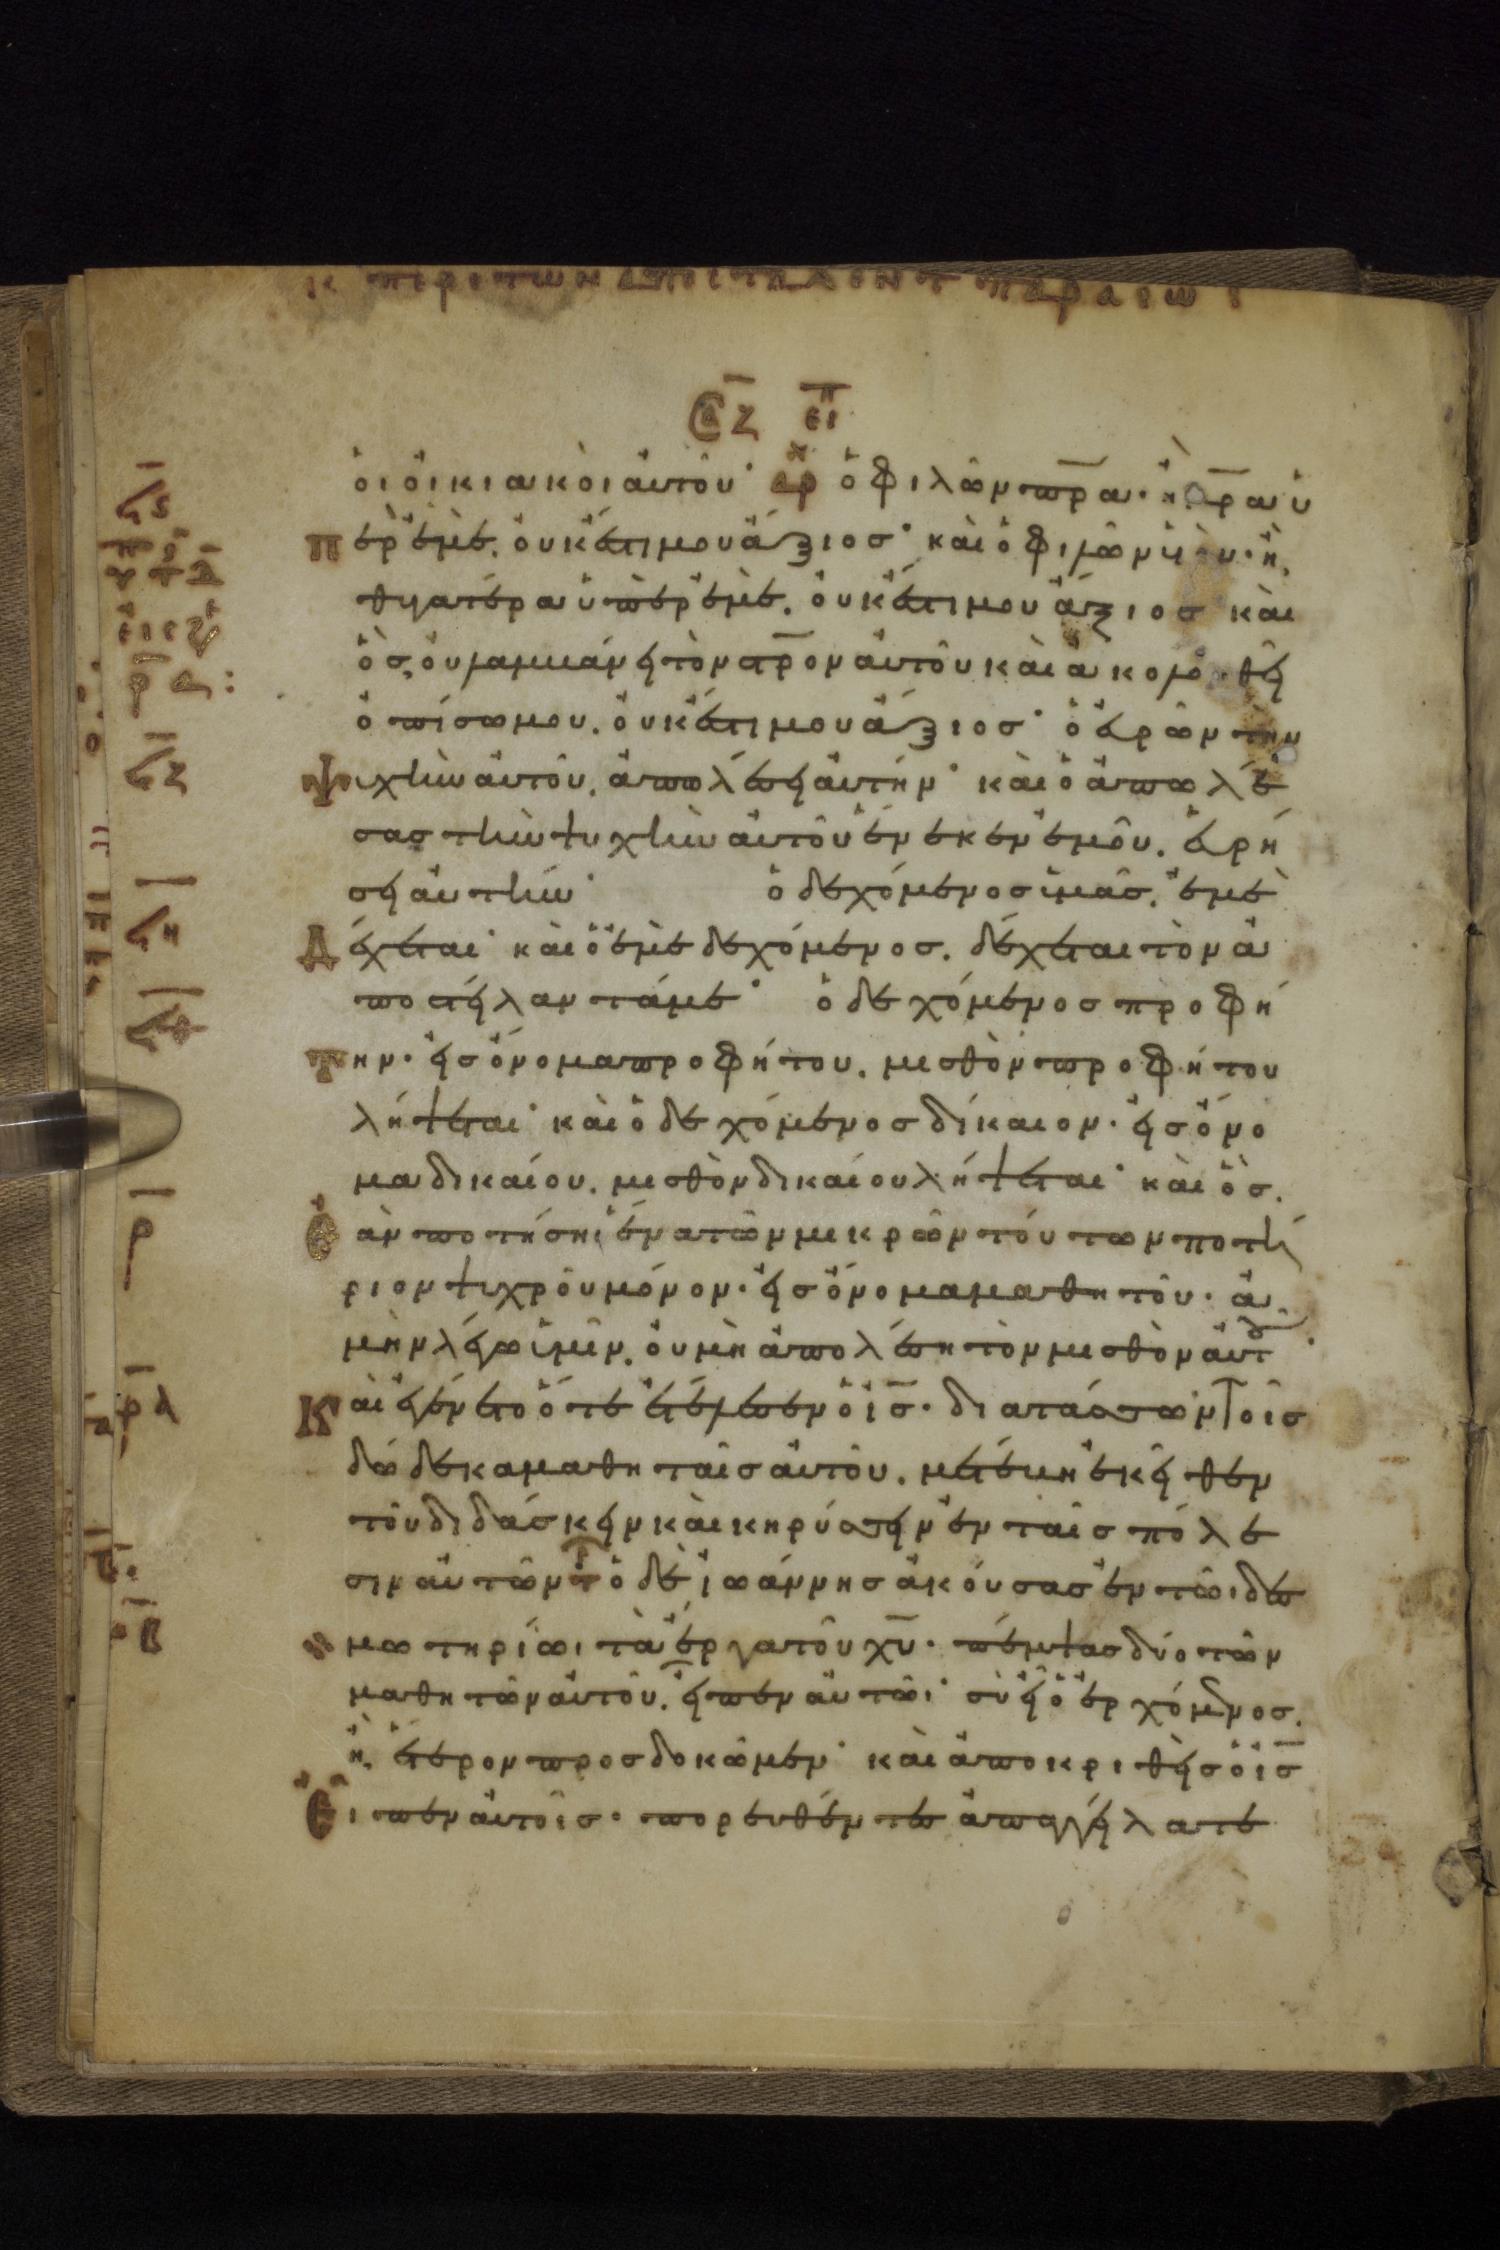 κ περι των αποσταλεντ παρα ιω
οἱ οἰκιακοὶ αὐτοῦ· ὁ φιλῶν πρ̅α· ἢ μρ̅α ὑ
πὲρ ἐμὲ, οὐκ ἔστι μου ἄξιοσ· καὶ ὁ φιλῶν υἱὸν· ἢ
θυγατέρα ὑπὲρ ἐμὲ, οὐκ ἔστι μου ἄξιοσ καὶ
ὃσ οὐ λαμβάνει τὸν στρ̅ον αὐτοῦ καὶ ἀκολουθεῖ
ὀπίσω μου, οὐκ ἔστι μου ἄξιοσ· ὁ εὑρὼν τὴν
ψυχὴν αὐτοῦ, ἀπολέσει αὐτήν· καὶ ὁ ἀπολέ
σασ τὴν ψυχὴν αὐτοῦ ἕνεκεν ἐμοῦ, εὑρή
σει αὐτήν· ὁ δεχόμενοσ ὑμᾶσ, ἐμὲ
δέχεται· καὶ ὁ ἐμὲ δεχόμενοσ, δέχεται τὸν ἀ
ποστείλαντά με· ὁ δεχόμενοσ προφή
την· εἰσ ὄνομα προφήτου, μισθὸν προφήτου
λήψεται· καὶ ὁ δεχόμενοσ δίκαιον· εἰσ ὄνο
μα δικαίου, μισθὸν δικαίου λήψεται· καὶ ὃσ
ἐὰν ποτήσηι ἕνα τῶν μικρῶν τούτων ποτή
ριον ψυχροῦ μόνον· εἰσ ὄνομα μαθητοῦ· ἀ
μὴν λέγω ὑμῖν, οὐ μὴ ἀπολέση τὸν μισθὸν αὐτ
Καὶ ἐγένετο ὅτε ἐτέλεσεν ὁ ἰσ̅· διατάσσων τοῖσ
δώδεκα μαθηταῖσ αὐτοῦ, μετέβη ἐκεῖθεν
τοῦ διδάσκειν καὶ κηρύσσειν ἐν ταῖσ πόλε
σιν αὐτῶν ὁ δὲ ἰωάννησ ἀκούσασ ἐν τῶι δεσ
μωτηρίωι τὰ ἔργα τοῦ χυ̅· πέμψασ δύο τῶν
μαθητῶν αὐτοῦ, εἶπεν αὐτῶι· σὺ εἶ ὁ ἐρχόμενοσ,
ἢ ἕτερον προσδοκῶμεν· καὶ ἀποκριθεὶσ ὁ ἰσ̅
Εἶπεν αὐτοῖσ· πορευθέντεσ ἀπαγγείλατε